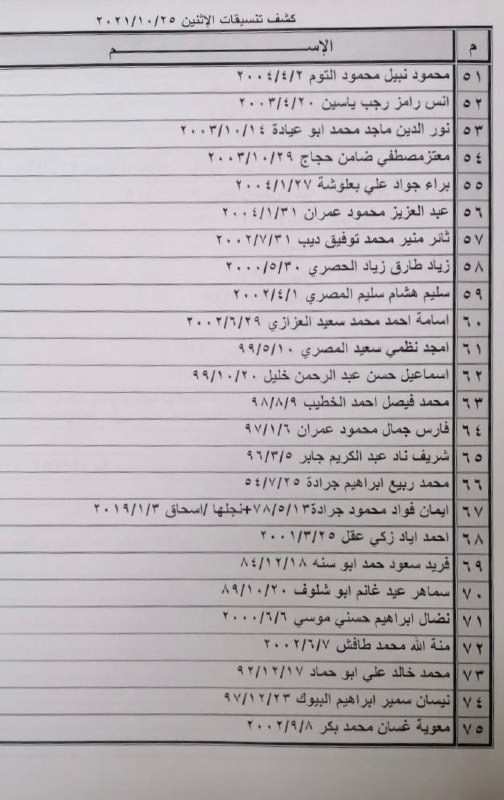 كشف تنسيقات الإثنين ٢٠٢١/١٠/٢٥
م الإســـــــــــــــم
٥١ محمود نبيل محمود التوم ٢٠٠٤/٤/٢
٥٢ انس رامز رجب ياسين ٢٠٠٣/٤/٢٠
٥٣ نور الدين ماجد محمد ابو عيادة ٢٠٠٣/١٠/١٤
٥٤ معتزمصطفي ضامن حجاج ٢٠٠٣/١٠/٢٩
٥٥ براء جواد علي بعلوشة ٢٠٠٤/١/٢٧
٥٦ عبد العزيز محمود عمران ٢٠٠٤/١/٣١
٥٧ ثائر منير محمد توفيق ديب ٢٠٠٢/٧/٣١
٥٨ زياد طارق زياد الحصري ٢٠٠٠/٥/٣٠
٥٩ سليم هشام سليم المصري ٢٠٠٢/٤/١
٦٠ اسامة احمد محمد سعيد العزازي ٢٠٠٢/٦/٢٩
٦١ امجد نظمي سعيد المصري ٩٩/٥/١٠
٦٢ اسماعيل حسن عبد الرحمن خليل ٩٩/١٠/٢٠
٦٣ محمد فيصل احمد الخطيب ٩٨/٨/٩
٦٤ فارس جمال محمود عمران ٩٧/١/٦
٦٥ شريف ناد عبد الكريم جابر ٩٦/٣/٥
٦٦ محمد ربيع ابراهيم جرادة ٥٤/٧/٢٥
٦٧ ايمان فواد محمود جرادة٧٨/٥/١٣+نجلها /اسحاق ٢٠١٩/١/٣
٦٨ احمد اياد زكي عقل ٢٠٠١/٣/٢٥
٦٩ فريد سعود حمد ابو سنه ٨٤/١٢/١٨
٧٠ سماهر عيد غانم ابو شلوف ٨٩/١٠/٢٠
٧١ نضال ابراهيم حسني موسي ٢٠٠٠/٦/٦
٧٢ منة الله محمد طافش ٢٠٠٢/٦/٧
٧٣ محمد خالد علي ابو حماد ٩٢/١٢/١٧
٧٤ نيسان سمير ابراهيم البيوك ٩٧/١٢/٢٣
٧٥ معوية غسان محمد بكر ٢٠٠٢/٩/٨